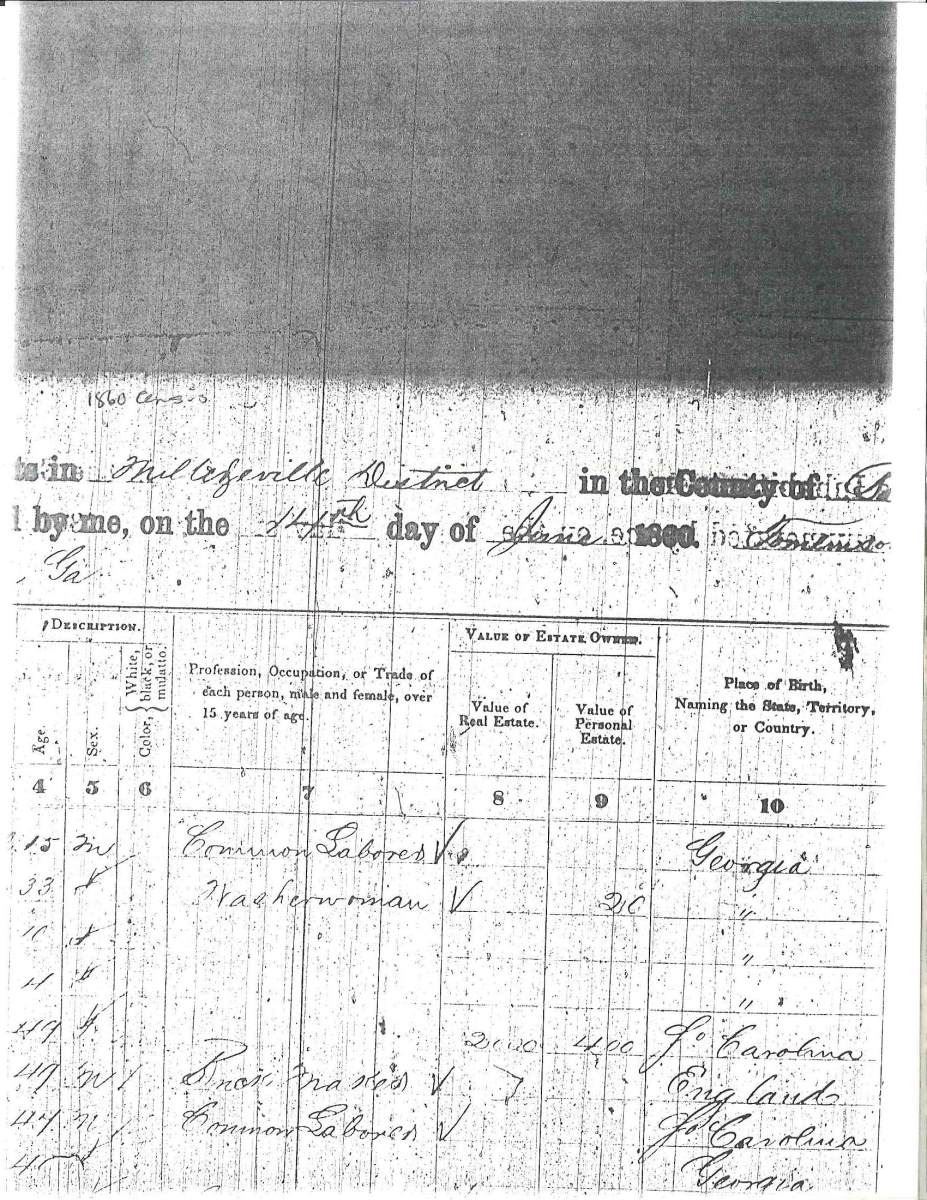 1860 Census
ts in Milledgeville District in the County of
d by me, on the 14th day of June 1860.
Ga
DESCRIPTION.
VALUE OF ESTATE OWNED.
Age.
Sex.
Color, { White, black, or mulatto.
Profession, Occupation, or Trade of each person, male and female, over 15 years of age.
Value of Real Estate.
Value of Personal Estate.
Place of Birth, Naming the State, Territory, or Country.
4 5 6 7 8 9 10
15 m Common Laborer Georgia
33 f Washerwoman 20 "
10 f "
4 f "
49 f 400 So Carolina
49 m England
47 m Common Laborer So Carolina
Georgia